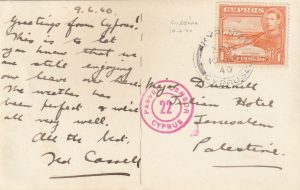 9.6.40.
Greetings from Cyprus!
This is to let
you know that we
are still enjoying
our leave here.
The weather has
been perfect & we're
all very well.
All the best.
Ted Cassell
CYPRUS
1
PIASTRE
40
PASSED CENSOR
22
CYPRUS
Dunnill
Hotel
Jerusalem
Palestine.